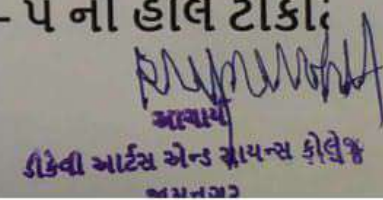 - ૫ ની હાલ ટીકીટ
આચાર્ય
ડીકેવી આર્ટસ એન્ડ સાયન્સ કોલેજ
જામનગર